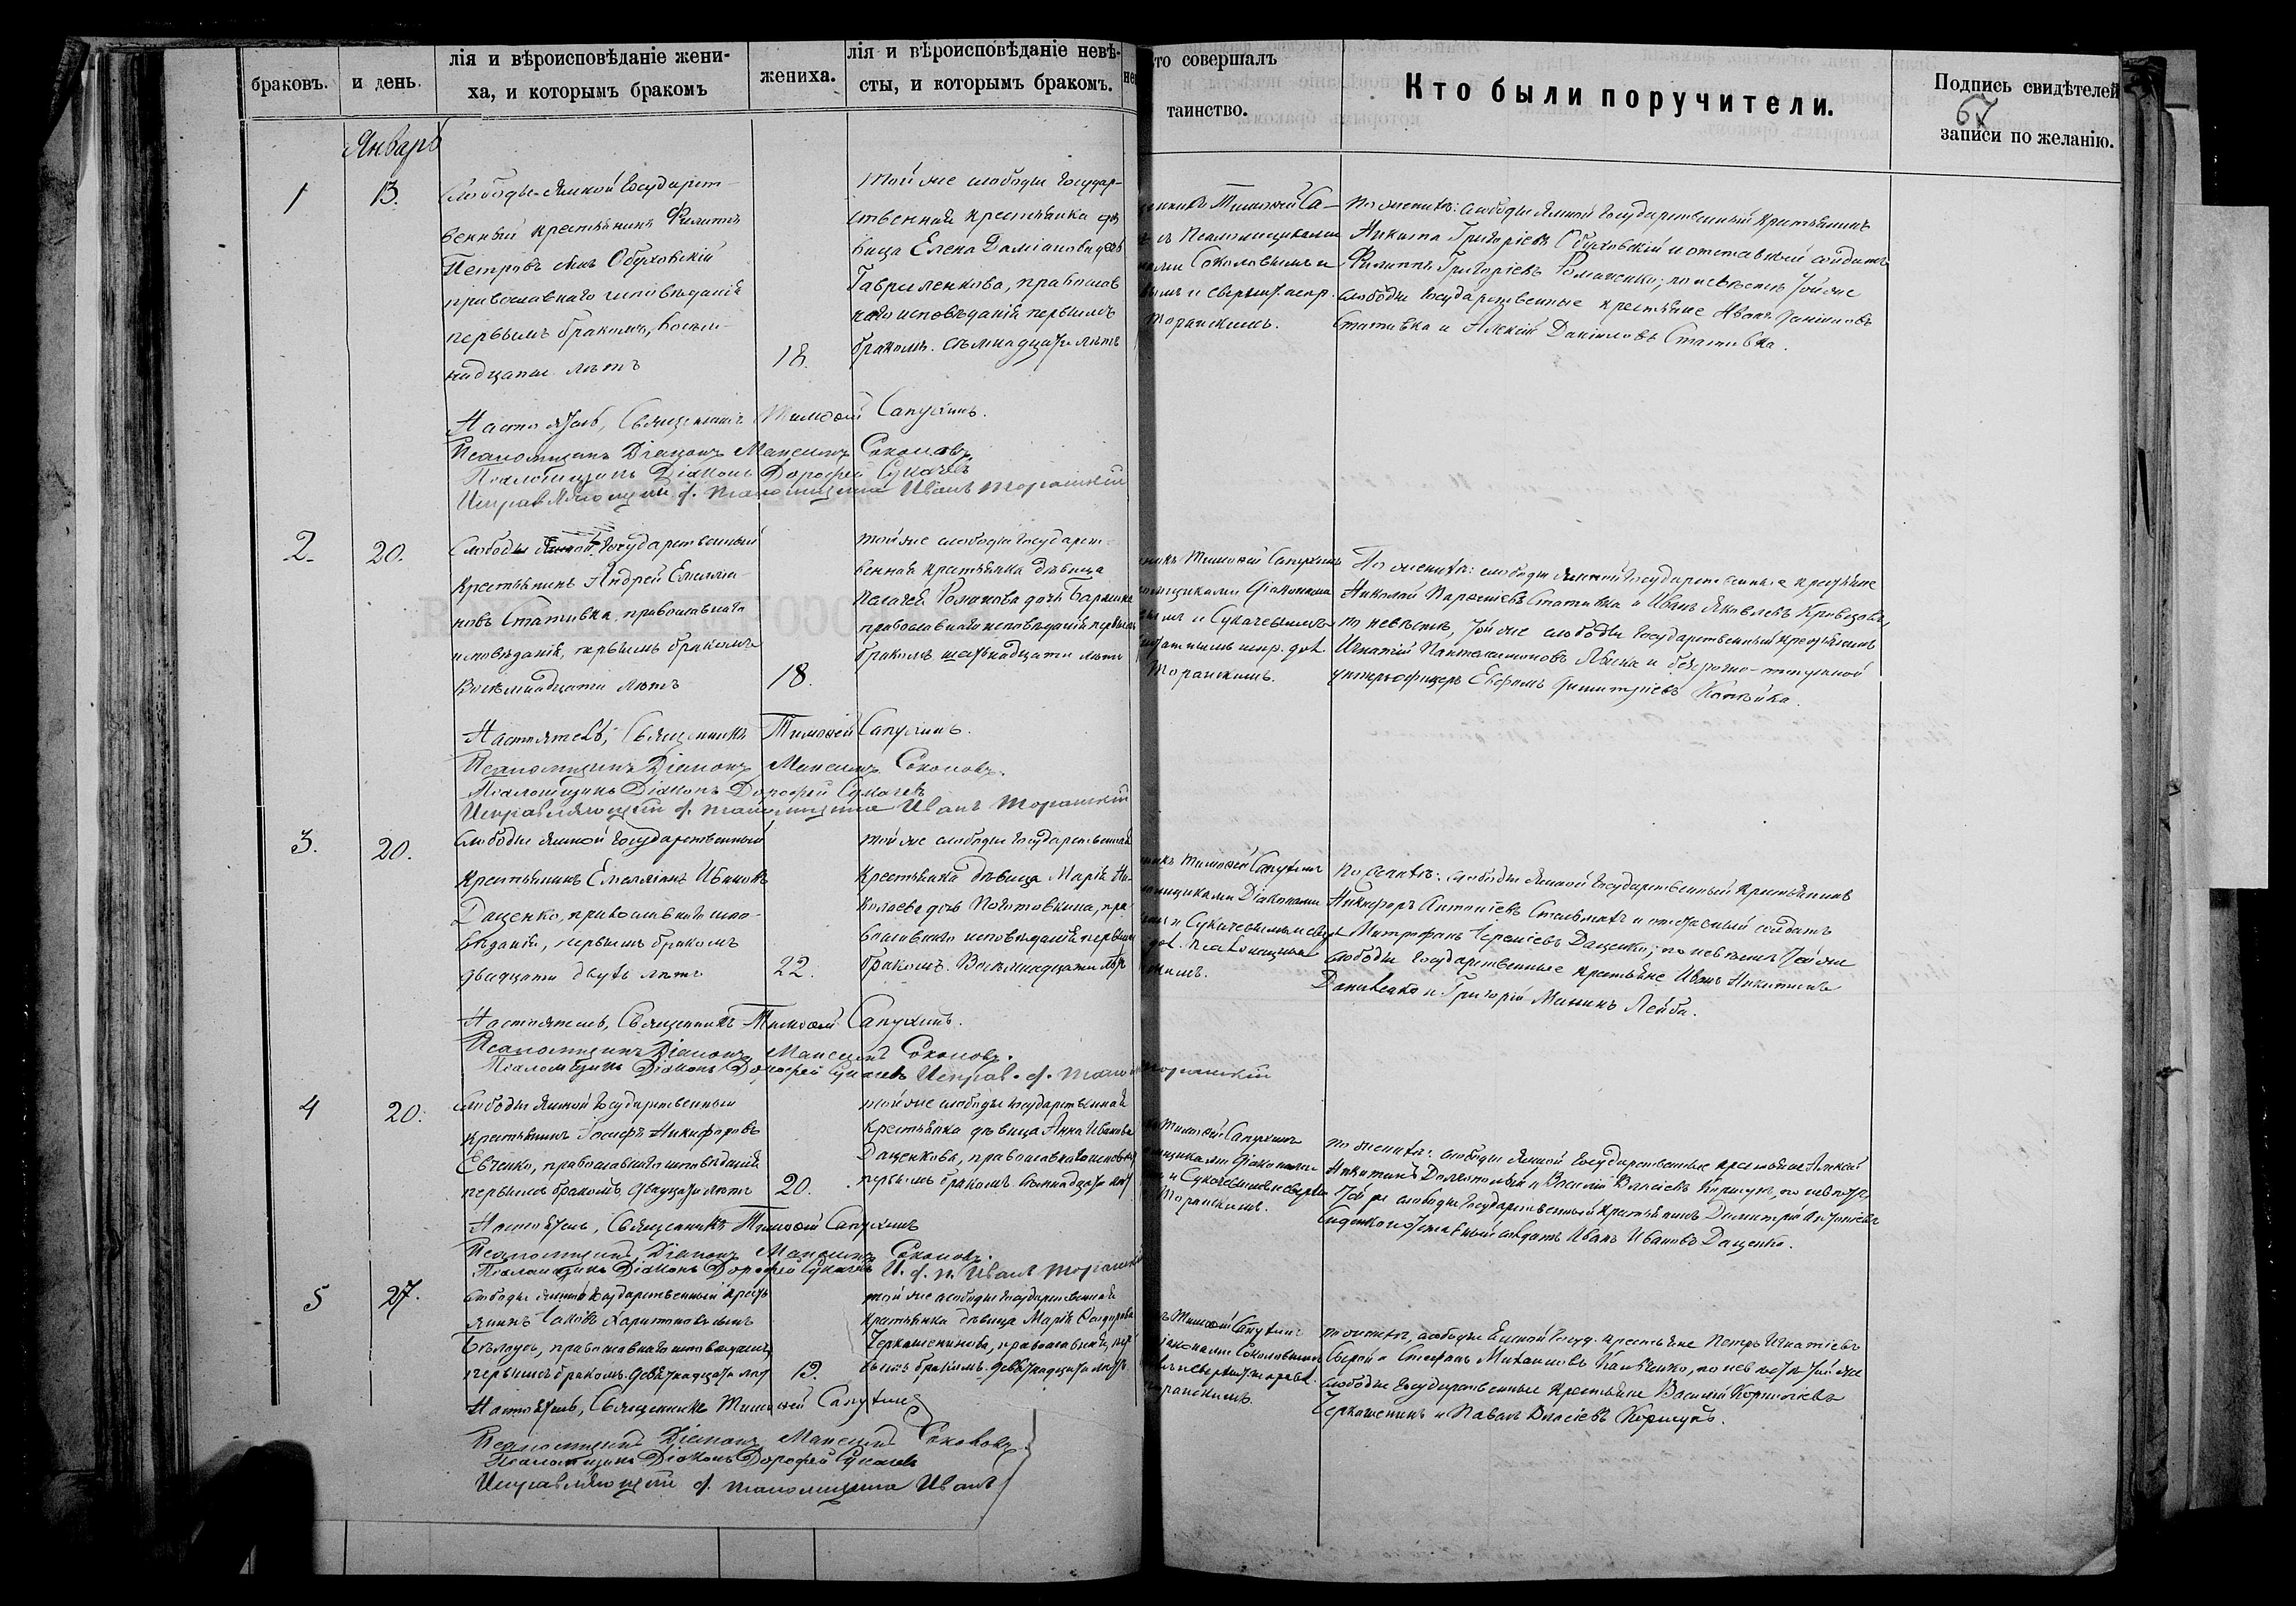 браковъ.
и день.
лія и вѣроисповѣданіе жени-
ха, и которымъ бракомъ
жениха.
лія и вѣроисповѣданіе невѣ-
сты, и которымъ бракомъ.
то совершалъ
таинство.
Кто были поручители.
Подпись свидѣтелей
записи по желанію.
67
Январь
1
13.
Слободы Ямной Государст-
венный крестьянинъ Филиппъ
Петровъ сынъ Обуховскій
православнаго исповѣданія
первымъ бракомъ, восем-
надцати лѣтъ
18.
Той же слободы Государ-
ственная крестьянка дѣ
вица Елена Даміанова дочь
Гавриленкова, православ
наго исповѣданія первымъ
бракомъ. Семнадцати лѣтъ
Тимофей Са-
съ Псаломщиками
Соколовымъ и
Торанскимъ.
По женихѣ: слободы Ямной Государственный крестьянинъ
Никита Григоріевъ Обуховскій и отставной солдатъ
Филиппъ Григоріевъ Романенко; по невѣстѣ той же
слободы Государственные крестьяне Иванъ
Стативка и Алексій Даніиловъ Стативка.
Настоятель, Священникъ Тимофей Сапухинъ.
Псаломщикъ Діаконъ Максимъ Соколовъ
Псаломщикъ Діаконъ Дорофей Сукачевъ
Исправляющій д. псаломщика Иванъ Торанскій
2.
20.
Слободы Ямной Государственный
крестьянинъ Андрей Емелія-
новъ Стативка, православнаго
исповѣданія, первымъ бракомъ
Восемнадцати лѣтъ
18.
той же слободы Государст-
венная крестьянка дѣвица
Пелагея Романова дочь
православнаго исповѣданія первымъ
бракомъ шестнадцати лѣтъ
Тимофей Сапухинъ
Діаконами
и Сукачевымъ
Торанскимъ.
По женихѣ: слободы Ямной Государственные крестьяне
Николай Стативка и Иванъ Яковлевъ
по невѣстѣ, той же слободы Государственный крестьянинъ
Игнатій Пантелеимоновъ и безсрочно-отпускной
унтерофицеръ Ефимъ Димитріевъ Копѣйка.
Настоятель, Священникъ Тимофей Сапухинъ.
Псаломщикъ Діаконъ Максимъ Соколовъ.
Псаломщикъ Діаконъ Дорофей Сукачевъ
Исправляющій д. псаломщика Иванъ Торанскій
3.
20.
Слободы Ямной Государственный
крестьянинъ Емеліянъ Ивановъ
Даценко, православнаго испо-
вѣданія, первымъ бракомъ
двадцати двухъ лѣтъ
22.
той же слободы Государственная
крестьянка дѣвица Марія Ни-
колаева дочь пра
вославнаго исповѣданія первымъ
бракомъ. Восемнадцати лѣтъ
Тимофей Сапухинъ
Діаконами
и Сукачевымъ
По женихѣ: слободы Ямной Государственный крестьянинъ
Никифоръ Антоніевъ и отставный солдатъ
Митрофанъ Даценко; по невѣстѣ той же
слободы Государственные крестьяне Иванъ Никитинъ
Даниленко и Григорій Мининъ
Настоятель, Священникъ Тимофей Сапухинъ.
Псаломщикъ Діаконъ Максимъ Соколовъ.
Псаломщикъ Діаконъ Дорофей Сукачевъ Исправ. д. Торанскій
4
20.
Слободы Ямной Государственный
крестьянинъ Іосифъ Никифоровъ
Евченко, православнаго исповѣданія
первымъ бракомъ, двадцати лѣтъ
20.
той же слободы Государственная
крестьянка дѣвица Анна Иванова
Даценкова, православнаго исповѣд
первымъ бракомъ.
Тимофей Сапухинъ
Діаконами
и Сукачевымъ
Торанскимъ.
По женихѣ: слободы Ямной Государственные крестьяне Алексѣй
Никитинъ и Василій Власіевъ Коршунъ, по невѣстѣ
той же слободы Государственный крестьянинъ Димитрій Антоніевъ
отставный солдатъ Иванъ Ивановъ Даценко.
Настоятель, Священникъ Тимофей Сапухинъ
Псаломщикъ Діаконъ Максимъ Соколовъ.
Псаломщикъ Діаконъ Дорофей Сукачевъ И. д. п. Иванъ Торанскій
5
27.
Слободы Ямной Государственный крестья
нинъ Іаковъ Харитоновъ сынъ
православнаго исповѣданія,
первымъ бракомъ. Девятнадцати лѣтъ
19.
той же слободы Государственная
крестьянка дѣвица Марія
Черкашенинова, православная, пер
вымъ бракомъ. Девятнадцати лѣтъ.
Тимофей Сапухинъ
Діаконами Соколовымъ
Торанскимъ.
По женихѣ, слободы Ямной Госуд. крестьяне Петръ Игнатіевъ
и Стефанъ Михаиловъ по невѣстѣ той же
слободы Государственные крестьяне Василій Корниліевъ
Черкашенинъ и Павелъ Власіевъ Коршунъ.
Настоятель, Священникъ Тимофей Сапухинъ
Псаломщикъ Діаконъ Максимъ Соколовъ
Псаломщикъ Діаконъ Дорофей Сукачевъ
Исправляющій д. псаломщика Иванъ